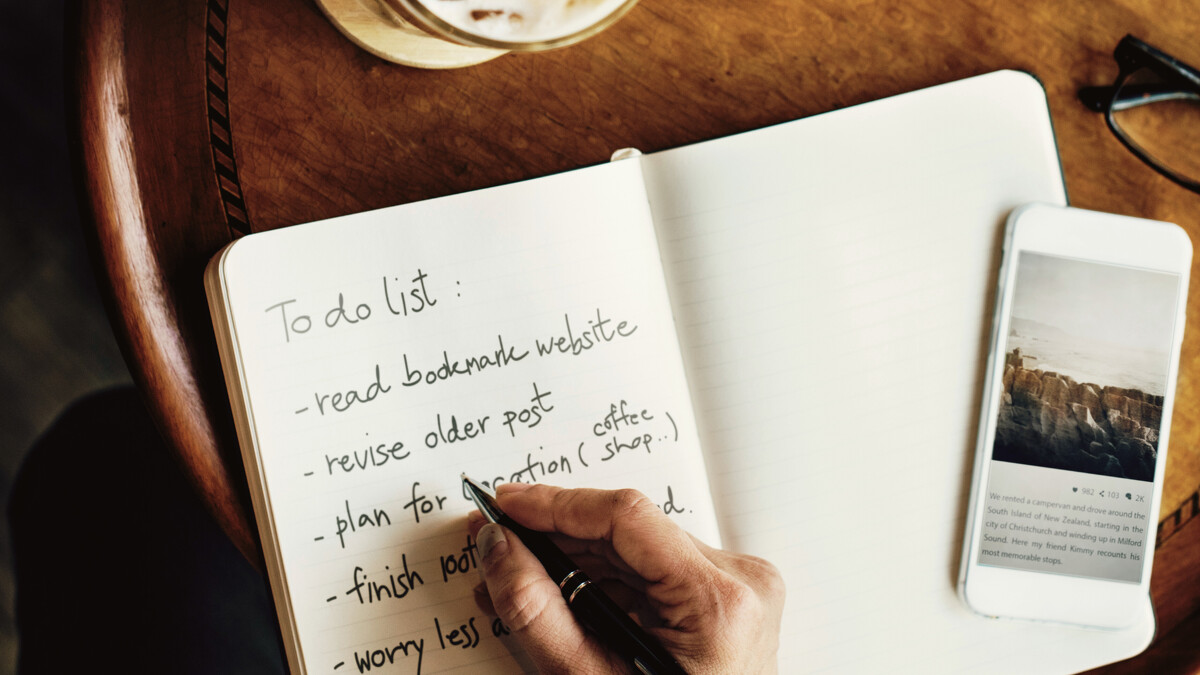 To do list :
- read bookmark website
- revise older post
- plan for location ( coffee shop.. )
- finish
- worry less
982 103 2K
We rented a campervan and drove around the
South Island of New Zealand, starting in the
city of Christchurch and winding up in Milford
Sound. Here my friend Kimmy recounts his
most memorable stops.